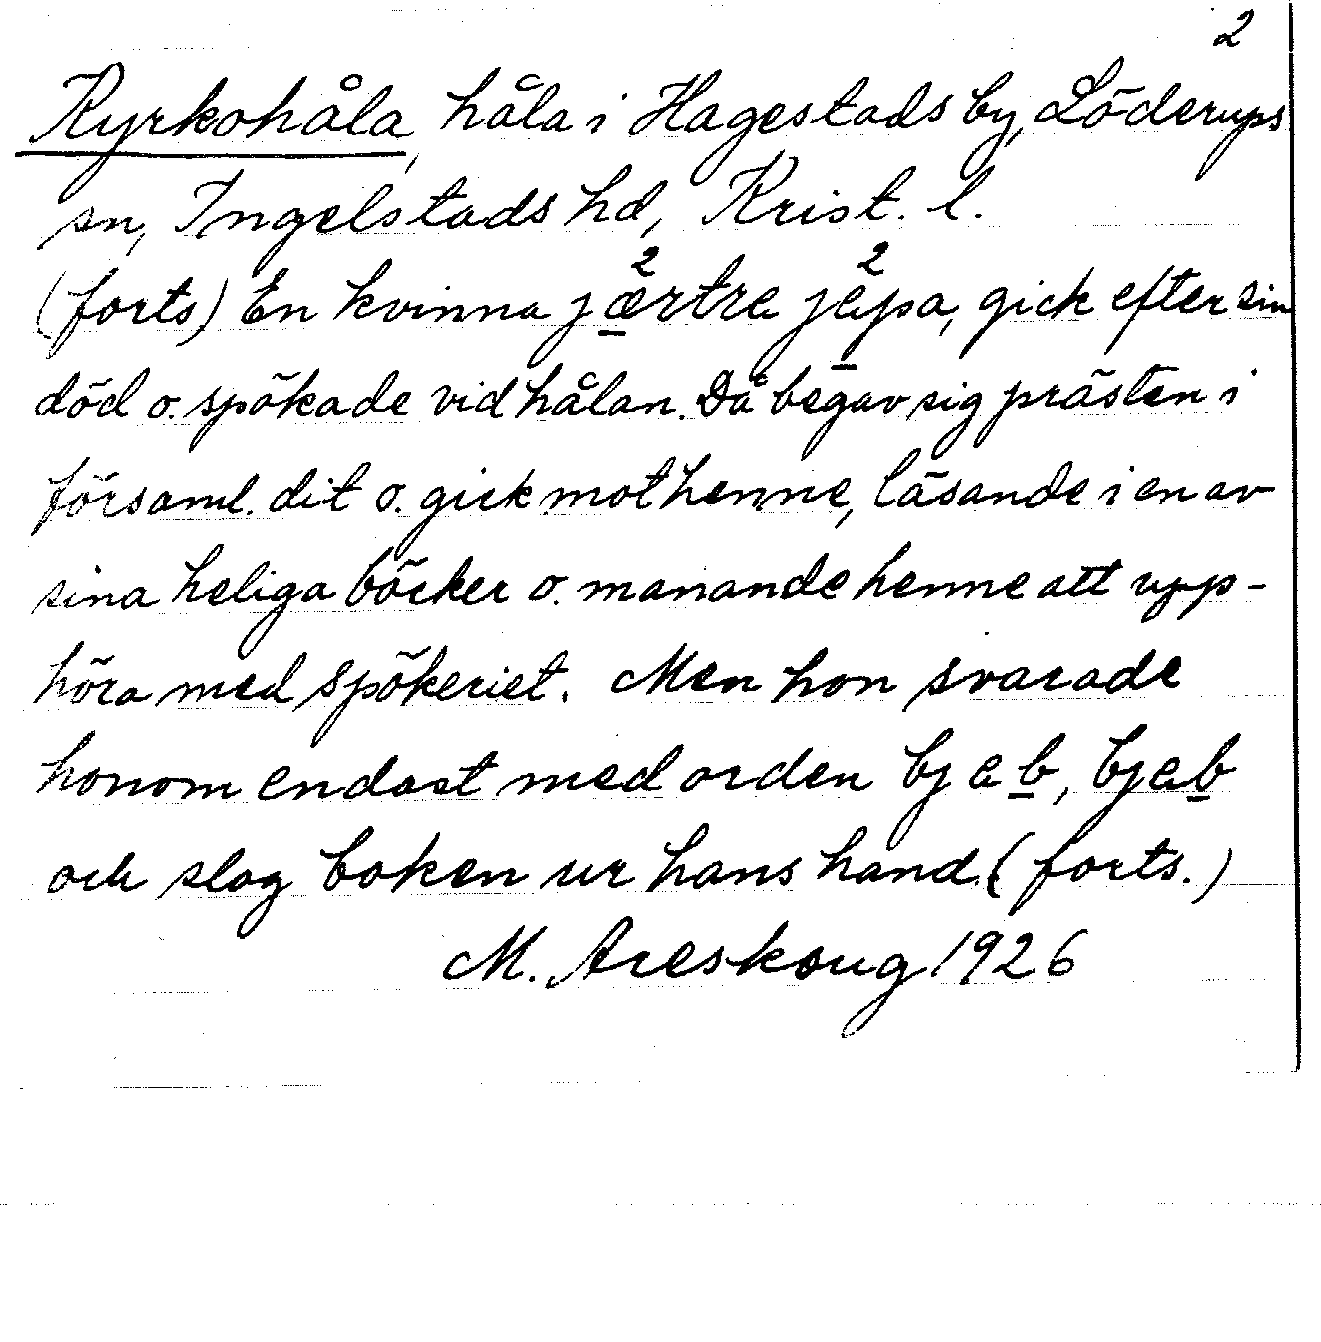 2
Kyrkohåla, håla i Hagestads by, Löderups
sn, Ingelstads hd, Krist. l.
(forts) En kvinna jærtra jepa, gick efter sin
död o. spökade vid hålan. Då begav sig prästen i
församl. dit o. gick mot henne, läsande i en av
sina heliga böcker o. manande henne att upp-
höra med spökeriet. Men hon svarade
honom endast med orden bjeb, bjeb
och slog boken ur hans hand. (forts.)
M. Areskoug 1926